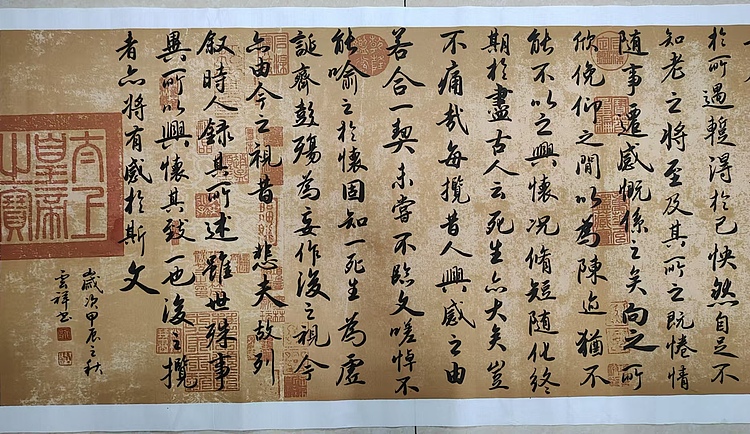 於所遇蹔得於己怏然自足不
知老之將至及其所之既惓情
隨事遷感慨係之矣向之所
欣俛仰之間以為陳迹猶不
能不以之興懷況脩短隨化終
期於盡古人云死生亦大矣豈
不痛哉每攬昔人興感之由
若合一契未嘗不臨文嗟悼不
能喻之於懷固知一死生為虛
誕齊彭殤為妄作後之視今
亦由今之視昔悲夫故列
叙時人録其所述雖世殊事
異所以興懷其致一也後之攬
者亦將有感於斯文
歲次甲辰之秋
雲祥書
太上
皇帝
之寶